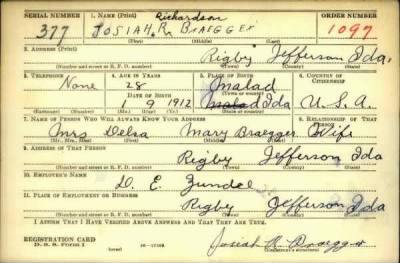 SERIAL NUMBER 1. NAME (Print) Richardson ORDER NUMBER
377 JOSIAH R. BRAEGGER 1097
(First) (Middle) (Last)
2. ADDRESS (Print)
Rigby Jefferson Ida.
(Number and street or R. F. D. number) (Town) (County) (State)
3. TELEPHONE 4. AGE IN YEARS 5. PLACE OF BIRTH 6. COUNTRY OF CITIZENSHIP
None 28 Malad
DATE OF BIRTH (Town or county)
1 9 1912 Malad Ida U.S.A.
(Exchange) (Number) (Mo.) (Day) (Yr.) (State or country)
7. NAME OF PERSON WHO WILL ALWAYS KNOW YOUR ADDRESS 8. RELATIONSHIP OF THAT PERSON
Mrs Delsa Mary Braegger Wife
(Mr., Mrs., Miss) (First) (Middle) (Last)
9. ADDRESS OF THAT PERSON
Rigby Jefferson Ida
(Number and street or R. F. D. number) (Town) (County) (State)
10. EMPLOYER'S NAME
D. E. Zundel
11. PLACE OF EMPLOYMENT OR BUSINESS
Rigby Jefferson Ida
(Number and street or R. F. D. number) (Town) (County) (State)
I AFFIRM THAT I HAVE VERIFIED ABOVE ANSWERS AND THAT THEY ARE TRUE.
REGISTRATION CARD
D. S. S. Form 1 Josiah R. Braegger
(Registrant's signature)